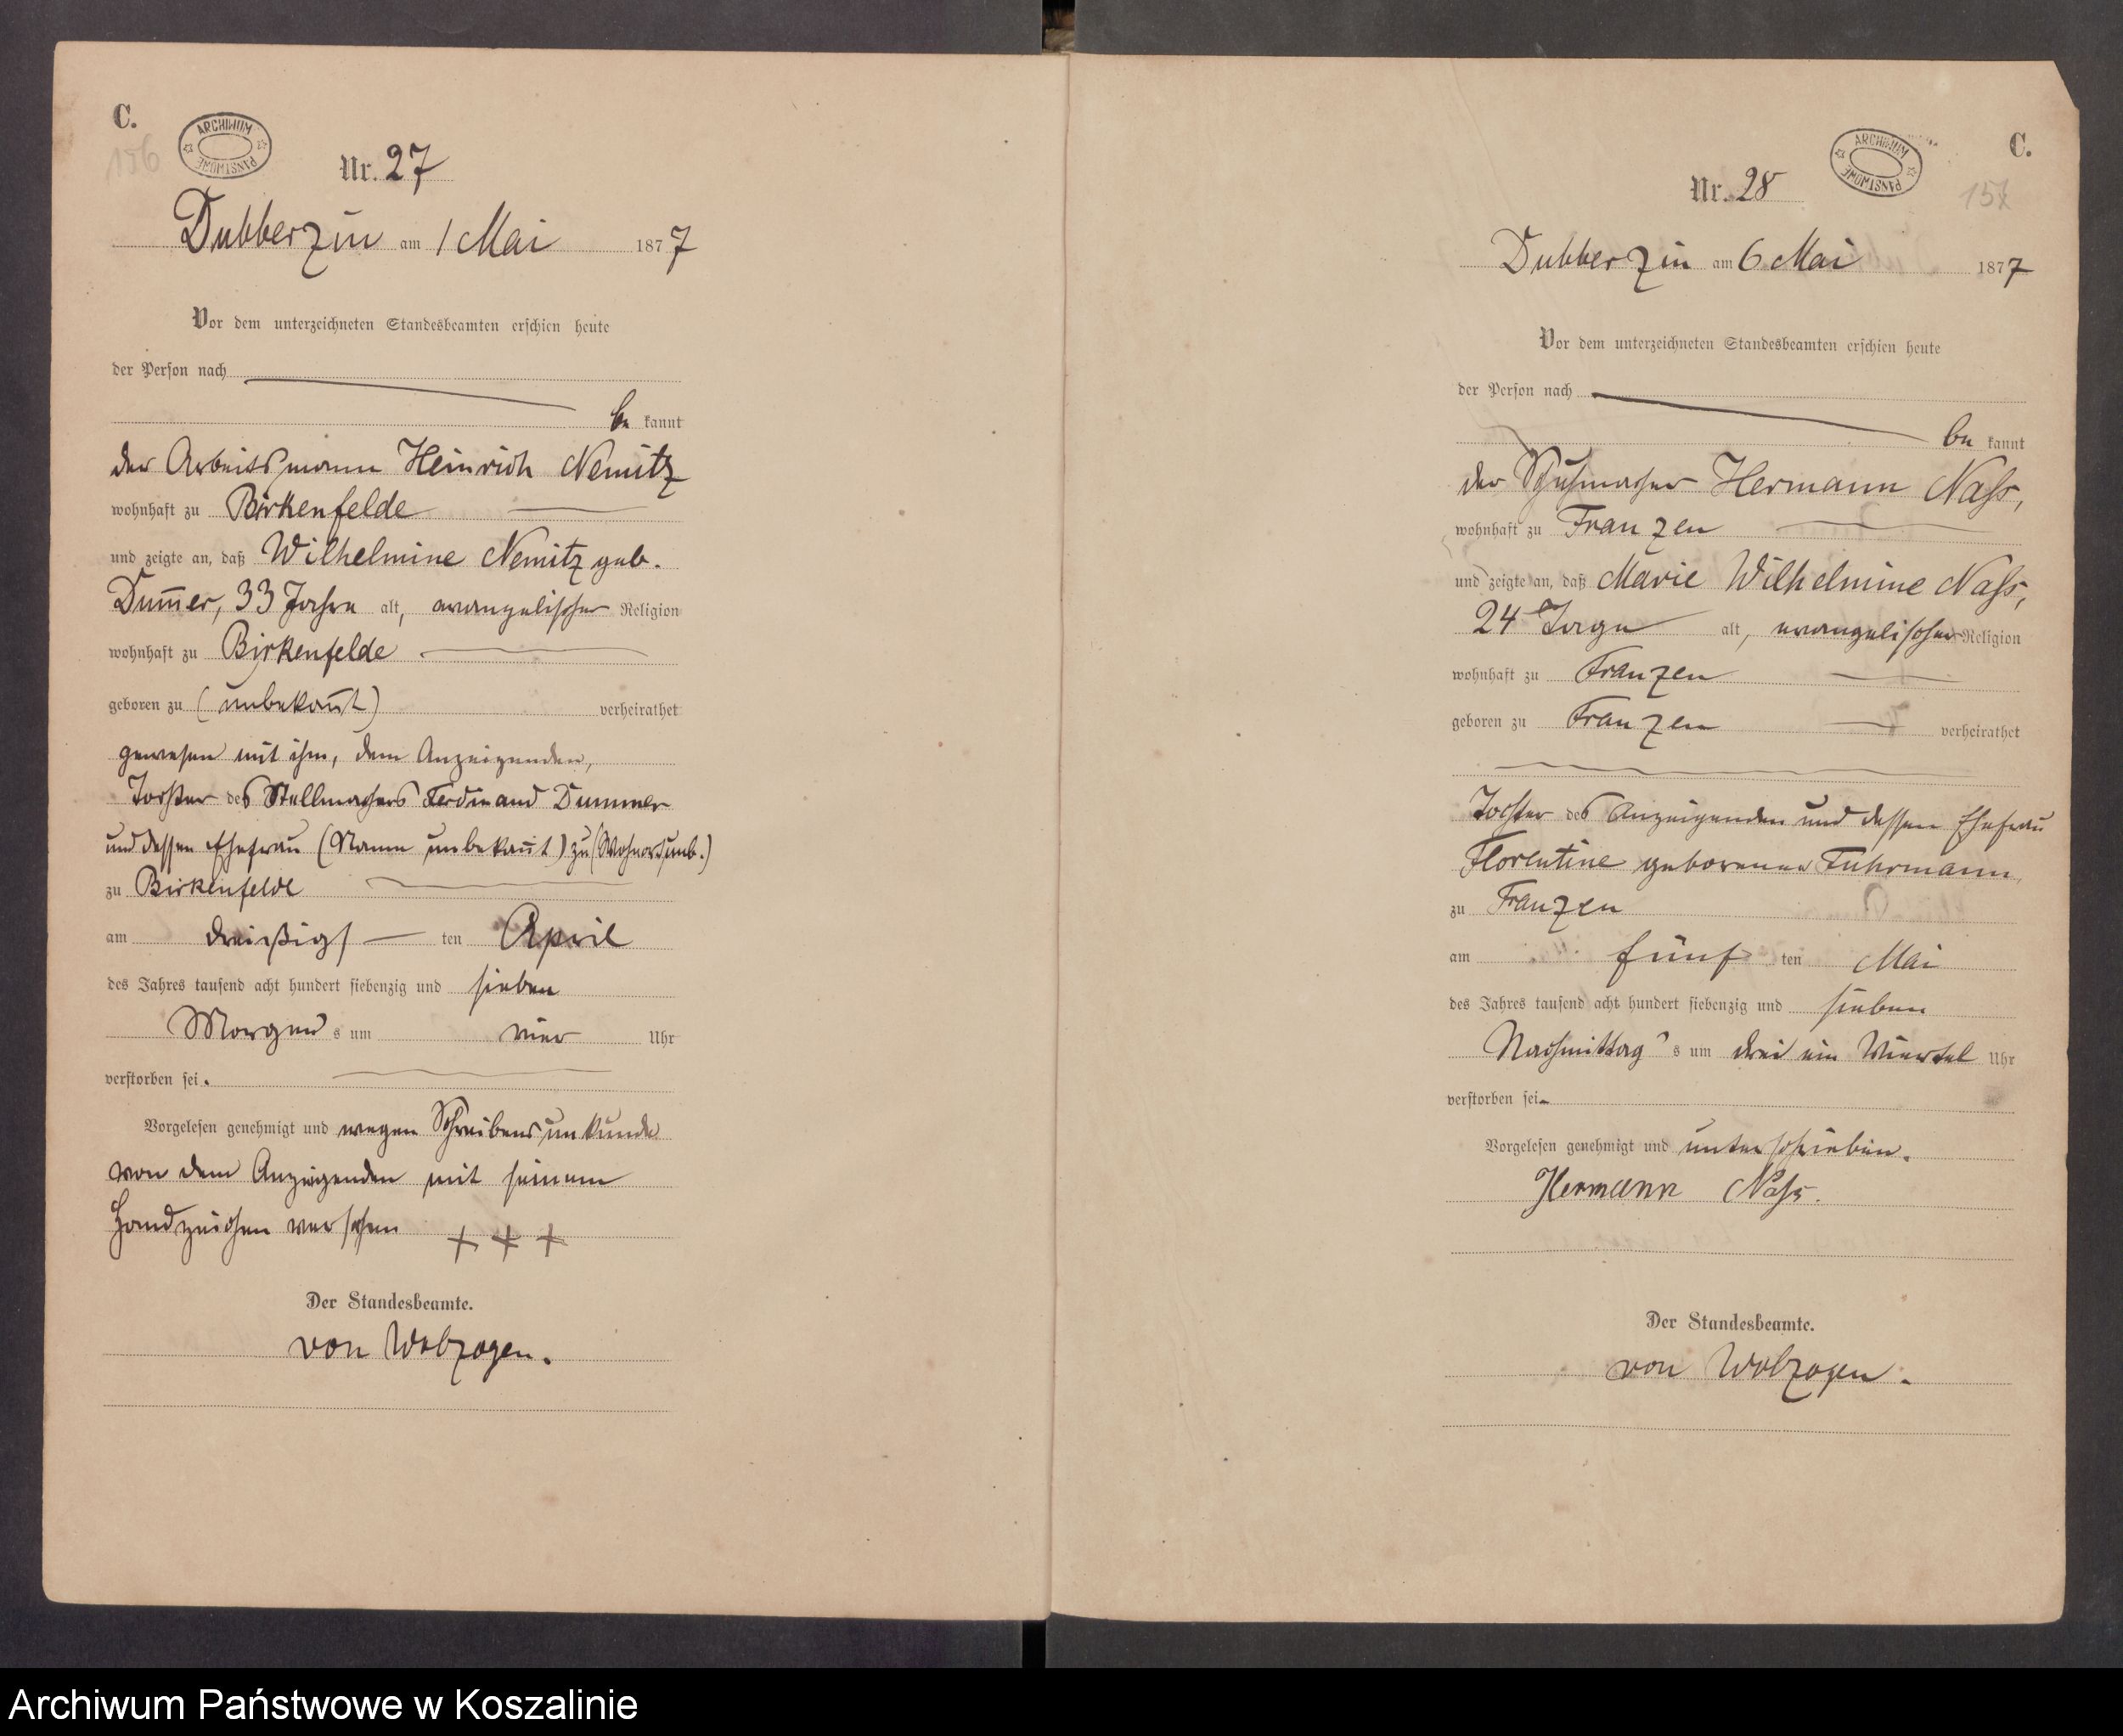 C.
156
ARCHIWUM PAŃSTWOWE
Nr. 27
Dubberzin am 1 Mai 1877
Vor dem unterzeichneten Standesbeamten erschien heute
der Person nach
be kannt
der Arbeitsmann Heinrich Nemitz
wohnhaft zu Birkenfelde
und zeigte an, daß Wilhelmine Nemitz geb.
Dum̄er, 33 Jahre alt, evangelischer Religion
wohnhaft zu Birkenfelde
geboren zu (unbekan̄t) verheirathet
gewesen mit ihm, dem Anzeigenden,
Tochter des Stellmachers Ferdinand Dummer
und dessen Ehefrau (Name unbekan̄t) zu (Wohnort unb.)
zu Birkenfelde
am dreißigs ten April
des Jahres tausend acht hundert siebenzig und sieben
Morgens um vier Uhr
verstorben sei.
Vorgelesen genehmigt und wegen Schreibensunkunde
von dem Anzeigenden mit seinem
Handzeichen versehen + + +
Der Standesbeamte.
von Wolzogen.
C.
157
ARCHIWUM PAŃSTWOWE
Nr. 28
Dubberzin am 6 Mai 1877
Vor dem unterzeichneten Standesbeamten erschien heute
der Person nach
be kannt
der Schuhmacher Hermann Nass,
wohnhaft zu Franzen
und zeigte an, daß Marie Wilhelmine Nass,
24 Tage alt, evangelischer Religion
wohnhaft zu Franzen
geboren zu Franzen verheirathet
Tochter des Anzeigenden und dessen Ehefrau
Florentine geborenen Fuhrmann
zu Franzen
am fünf ten Mai
des Jahres tausend acht hundert siebenzig und sieben
Nachmittag s um drei ein Viertel Uhr
verstorben sei.
Vorgelesen genehmigt und unterschrieben.
Hermann Nass.
Der Standesbeamte.
von Wolzogen.
Archiwum Państwowe w Koszalinie